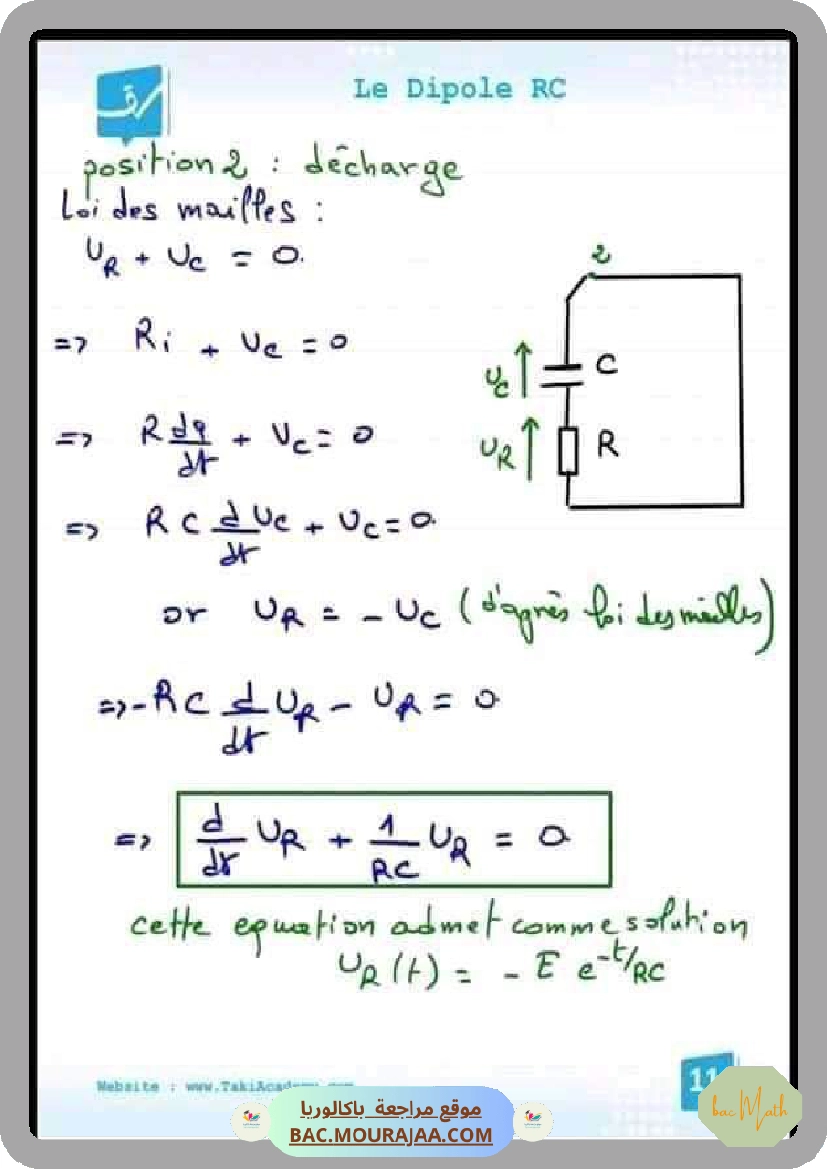 Le Dipole RC
position 2 : décharge
Loi des mailles :
U_R + U_C = 0.
2
=> Ri + U_C = 0
U_C C
=> R dq/dt + U_C = 0
U_R R
=> RC d U_C/dt + U_C = 0
or U_R = - U_C (d'après loi des mailles)
=> - RC d/dt U_R - U_R = 0
=> d/dt U_R + 1/RC U_R = 0
cette equation admet comme solution
U_R(t) = - E e^-t/RC
11
Website : www.TakiAcademy.com
موقع مراجعة باكالوريا
BAC.MOURAJAA.COM
bac Math